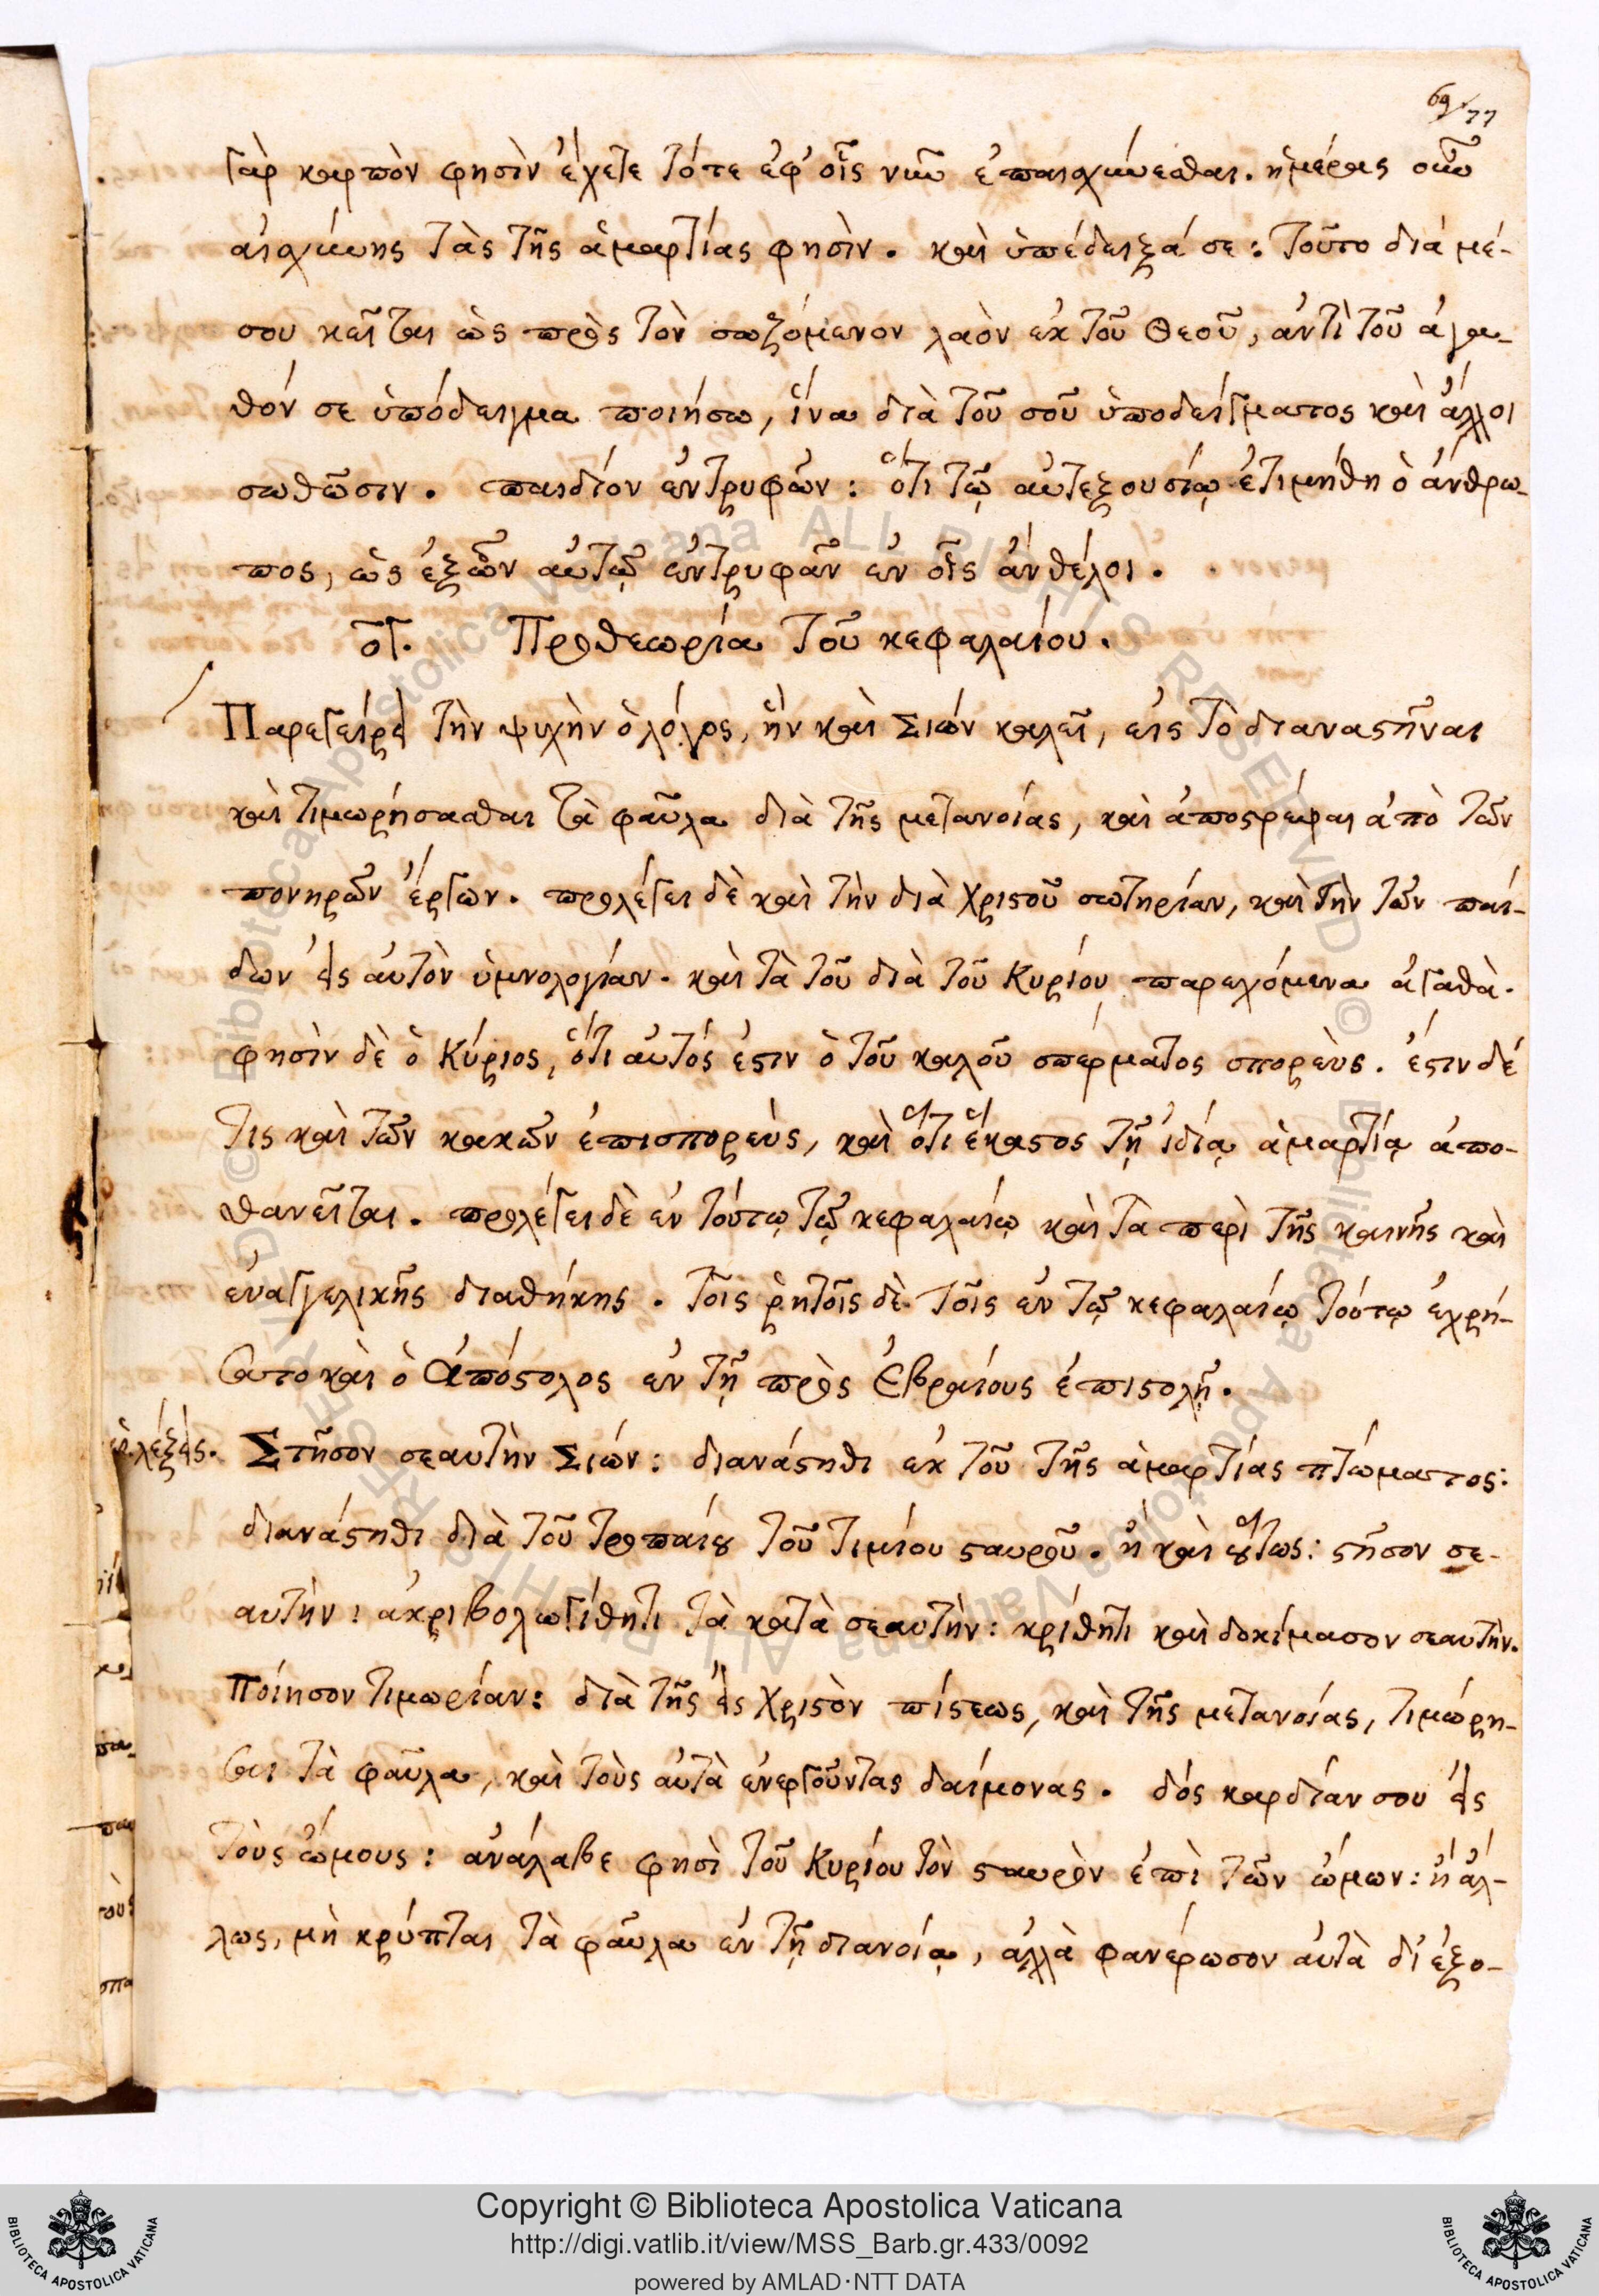 69/77
γὰρ καρπὸν φησὶν ἔχετε τότε ἐφ' οἷς νῦν ἐπαισχύνεσθαι. ἡμέρας οὖν
αἰσχύνης τὰς τῆς ἁμαρτίας φησὶν. καὶ ὑπέδειξά σε: τοῦτο διὰ μέ-
σου κεῖται ὡς πρὸς τὸν σωζόμενον λαὸν ἐκ τοῦ Θεοῦ, ἀντὶ τοῦ ἀγα-
θόν σε ὑπόδειγμα ποιήσω, ἵνα διὰ τοῦ σοῦ ὑποδείγματος καὶ ἄλλοι
σωθῶσιν. παιδίον ἐντρυφῶν: ὅτι τῷ αὐτεξουσίῳ ἐτιμήθη ὁ ἄνθρω-
πος, ὡς ἐξὸν αὐτῷ ἐντρυφᾶν ἐν οἷς ἂν θέλοι.
ογ. Προθεωρία τοῦ κεφαλαίου.
Παρεγείρει τὴν ψυχὴν ὁ λόγος, ἣν καὶ Σιών καλεῖ, εἰς τὸ διαναστῆναι
καὶ τιμωρήσασθαι τὰ φαῦλα διὰ τῆς μετανοίας, καὶ ἀποστρέψαι ἀπὸ τῶν
πονηρῶν ἔργων. προλέγει δὲ καὶ τὴν διὰ Χριστοῦ σωτηρίαν, καὶ τὴν τῶν παί-
δων εἰς αὐτὸν ὑμνολογίαν. καὶ τὰ τοῦ διὰ τοῦ Κυρίου παρεχόμενα ἀγαθὰ.
φησὶν δὲ ὁ Κύριος, ὅτι αὐτός ἐστιν ὁ τοῦ καλοῦ σπέρματος σπορεὺς. ἔστιν δέ
τις καὶ τῶν κακῶν ἐπισπορεὺς, καὶ ὅτι ἕκαστος τῇ ἰδίᾳ ἁμαρτίᾳ ἀπο-
θανεῖται. προλέγει δὲ ἐν τούτῳ τῷ κεφαλαίῳ καὶ τὰ περὶ τῆς καινῆς καὶ
εὐαγγελικῆς διαθήκης. τοῖς ῥητοῖς δὲ τοῖς ἐν τῷ κεφαλαίῳ τούτῳ ἐχρή-
σατο καὶ ὁ Ἀπόστολος ἐν τῇ πρὸς Ἑβραίους ἐπιστολῇ.
Στῆσον σεαυτὴν Σιών: διανάστηθι ἐκ τοῦ τῆς ἁμαρτίας πτώματος:
διανάστηθι διὰ τοῦ τροπαίου τοῦ τιμίου σταυροῦ. ἢ καὶ οὕτως: στῆσον σε-
αυτὴν: ἀκριβολογήθητι τὰ κατὰ σεαυτὴν: κρίθητι καὶ δοκίμασον σεαυτὴν.
Ποίησον τιμωρίαν: διὰ τῆς εἰς Χριστὸν πίστεως, καὶ τῆς μετανοίας, τιμώρη-
σαι τὰ φαῦλα, καὶ τοὺς αὐτὰ ἐνεργοῦντας δαίμονας. δός καρδίαν σου εἰς
τοὺς ὤμους: ἀνάλαβε φησὶ τοῦ Κυρίου τὸν σταυρὸν ἐπὶ τῶν ὤμων: ἢ ἄλ-
λως, μὴ κρύπται τὰ φαῦλα ἐν τῇ διανοίᾳ, ἀλλὰ φανέρωσον αὐτὰ δι' ἐξο-
Copyright © Biblioteca Apostolica Vaticana
http://digi.vatlib.it/view/MSS_Barb.gr.433/0092
powered by AMLAD·NTT DATA
BIBLIOTECA APOSTOLICA VATICANA
BIBLIOTECA APOSTOLICA VATICANA